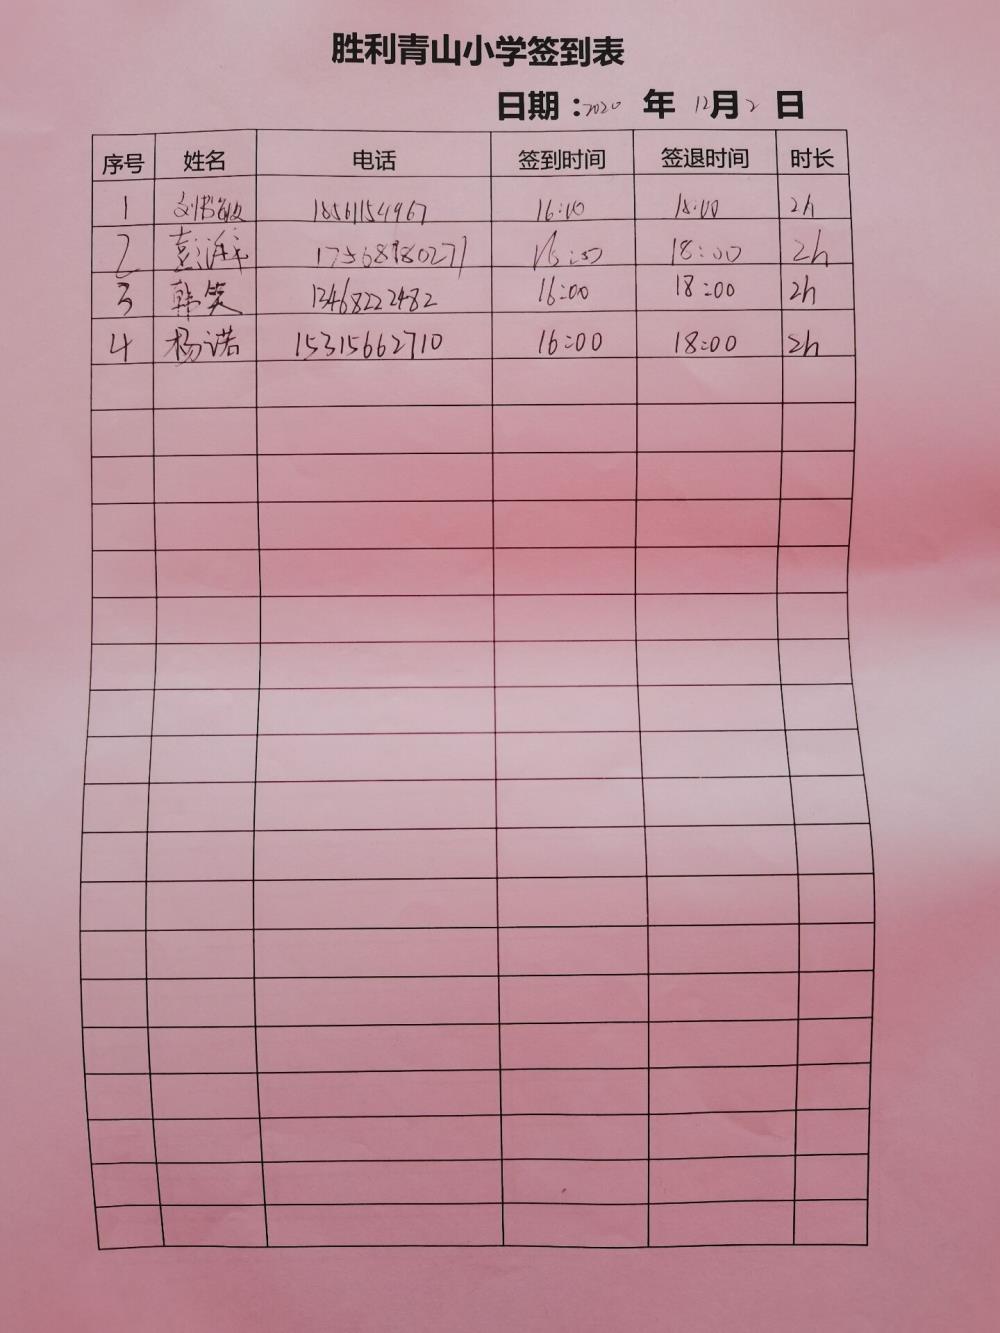 胜利青山小学签到表
日期：2020 年 12月2 日
序号 姓名 电话 签到时间 签退时间 时长
1 18561154967 16:00 18:00 2h
2 17568980271 18:00 2h
3 韩笑 13468222482 16:00 18:00 2h
4 杨诺 15315662710 16:00 18:00 2h